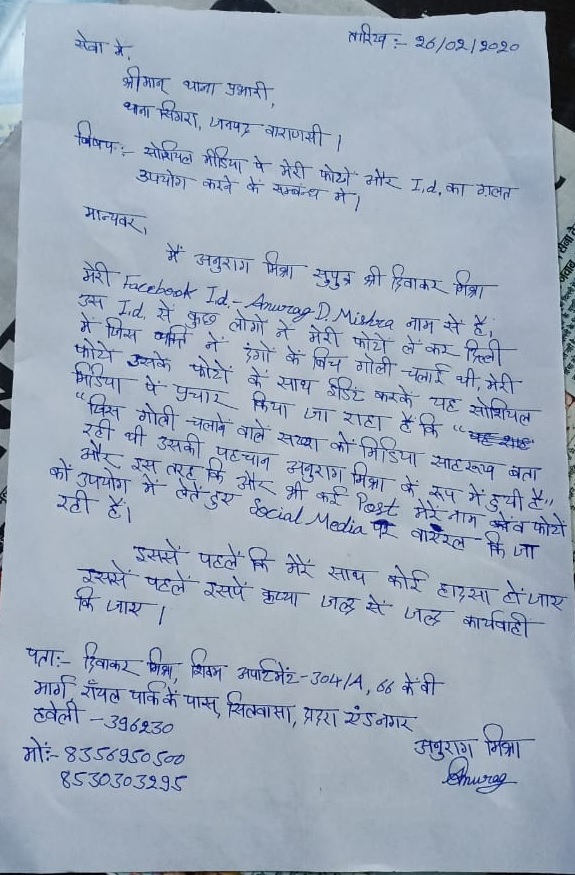 तारिख :- 26/02/2020
सेवा में,
श्रीमान् थाना प्रभारी,
थाना सिगरा, जनपद वाराणसी।
विषय:- सोशियल मीडिया पे मेरी फोटो और I.d. का गलत
उपयोग करने के सम्बन्ध में।
मान्यवर,
मैं अनुराग मिश्रा सुपुत्र श्री दिवाकर मिश्रा
मेरी Facebook Id.- Anurag D. Mishra नाम से हैं,
उस I.d. से कुछ लोगों ने मेरी फोटो लें कर दिल्ली
में जिस व्यक्ति नें दंगों के बिच गोली चलाई थी, मेरी
फोटो उसके फोटो के साथ इडिट करके यह सोशियल
मिडिया पे प्रचार किया जा राहा है कि "
"जिस गोली चलाने वाले सख्श को मिडिया साहरूख बता
रही थी उसकी पहचान अनुराग मिश्रा के रूप में हुयी है"
और इस तरह कि और भी कई Post मेरे नाम व फोटो
को उपयोग में लेते हुए Social Media पर वायरल कि जा
रही हैं।
इससें पहलें कि मेरें साथ कोई हादसा हों जाए
इससें पहलें इसपें कृप्या जल्द सें जल्द कार्यवाही
कि जाए।
पता:- दिवाकर मिश्रा, शिवम अपार्टमेंट-304/A, 66 कें वी
मार्ग, रॉयल पार्क कें पास, सिलवासा, दादरा एंड नगर
हवेली - 396230
मों:- 8356950500
8530303295
अनुराग मिश्रा
Anurag